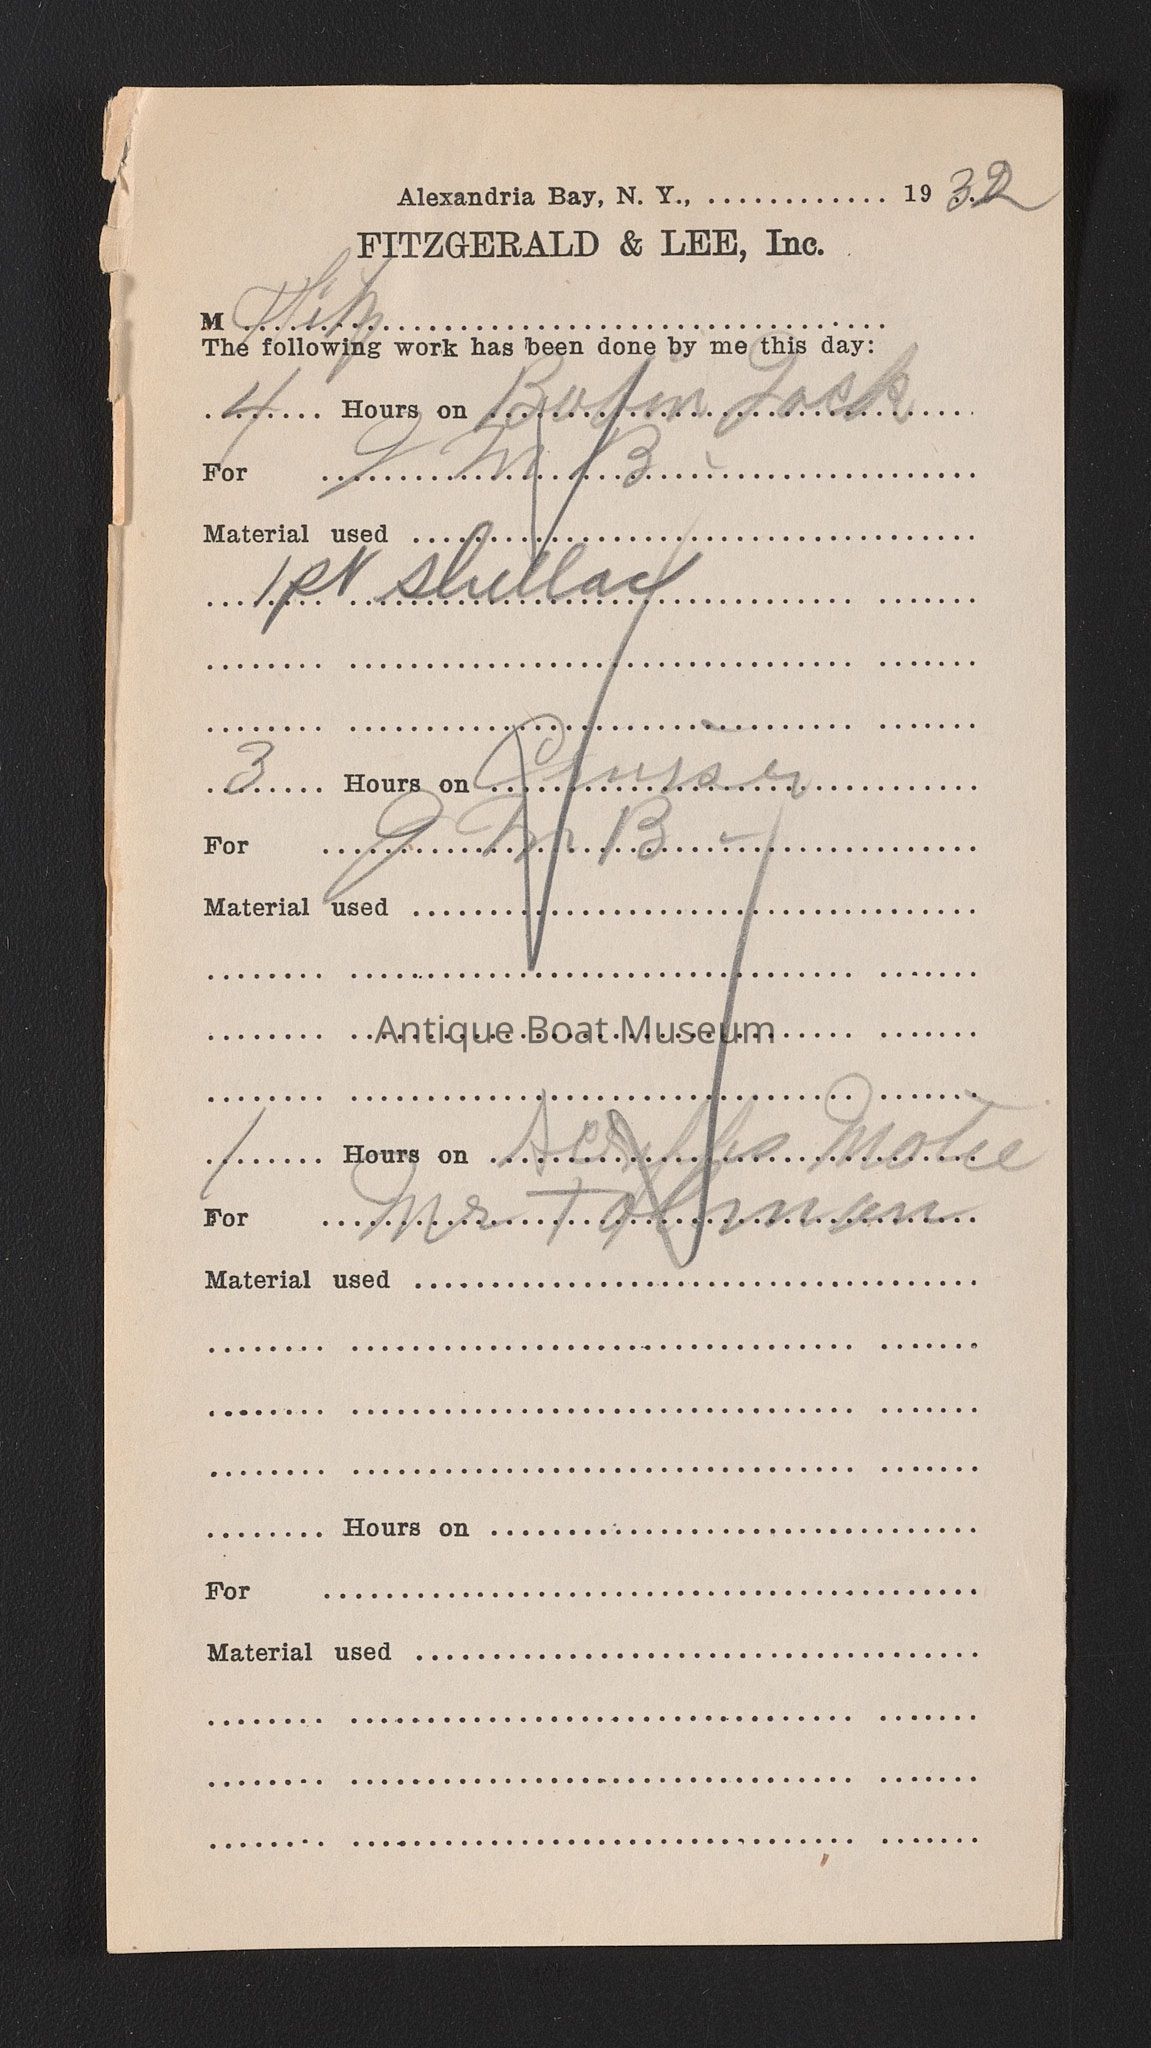 Alexandria Bay, N. Y., ............ 19 32
FITZGERALD & LEE, Inc.
M ..........................................
The following work has been done by me this day:
4 Hours on Robin Jack
For J M B -
Material used ....................................
1 pt shellac
3 Hours on Cruiser
For J M B -
Material used ....................................
Antique Boat Museum
1 Hours on Scripps Motie
For Mr Tolman
Material used ....................................
........ Hours on ................................
For ..........................................
Material used ....................................